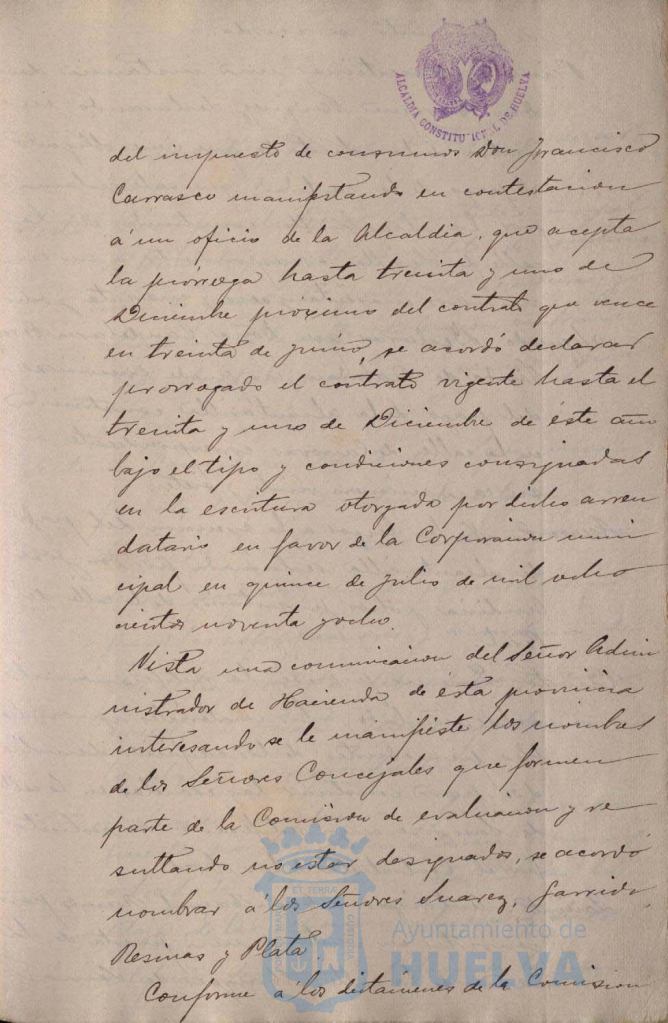 ALCALDIA CONSTITUCIONAL DE HUELVA
del impuesto de consumos Don Francisco
Carrasco manifestando en contestacion
á un oficio de la Alcaldia, que acepta
la prórroga hasta treinta y uno de
Diciembre próximo del contrato que vence
en treinta de junio, se acordó declarar
prorrogado el contrato vigente hasta el
treinta y uno de Diciembre de éste año
bajo el tipo y condiciones consignadas
en la escritura otorgada por dicho arren
datario en favor de la Corporacion muni
cipal en quince de julio de mil ocho
cientos noventa y ocho.
Vista una comunicacion del Señor Admi
nistrador de Hacienda de ésta provincia
interesando se le manifieste los nombres
de los Señores Concejales que formen
parte de la Comision de evaluacion y re
sultando no estar designados, se acordó
nombrar á los Señores Suarez, Garrido,
Resinas y Plata.
Conforme á los dictamenes de la Comision
Ayuntamiento de
HUELVA